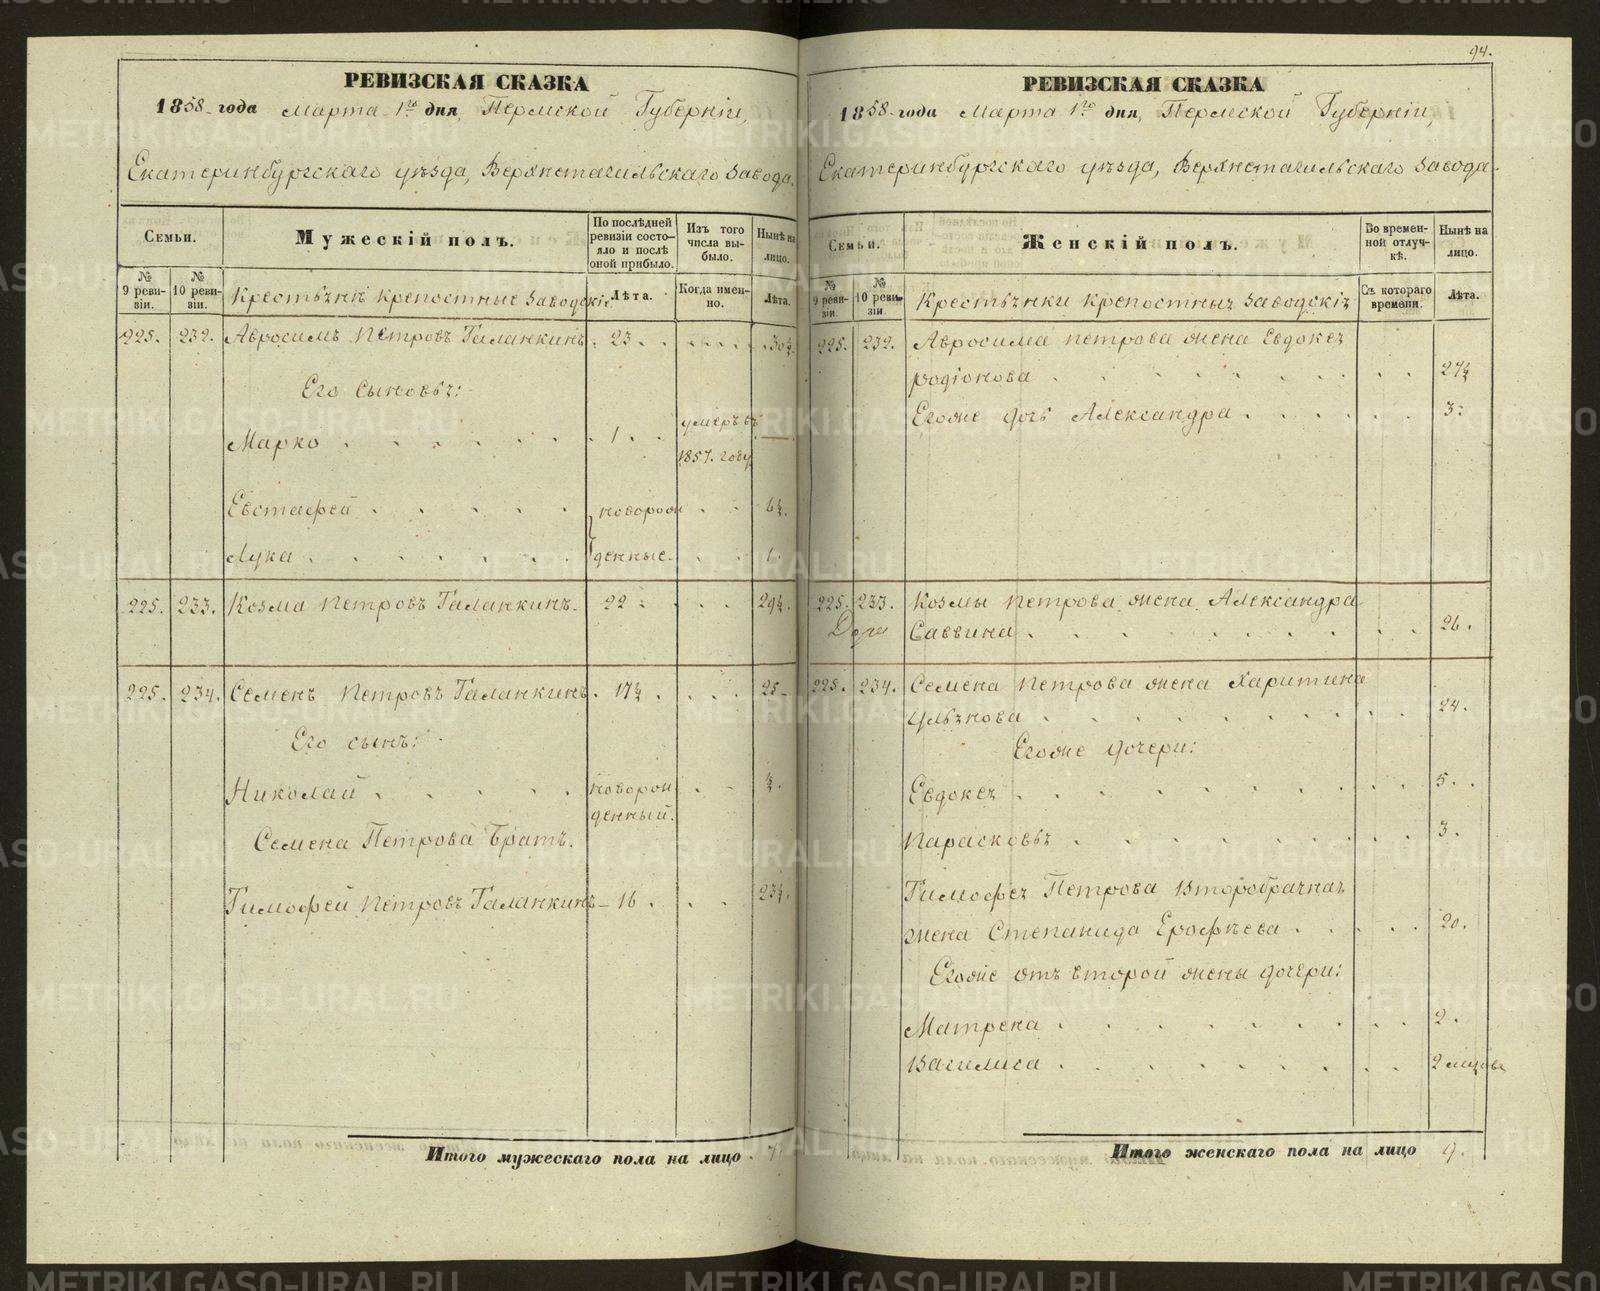 РЕВИЗСКАЯ СКАЗКА
1858 года Марта 1го дня, Пермской Губерніи,
Екатеринбургскаго уѣзда, Верхнетагильскаго завода.
Семьи.
Мужескій полъ.
По послѣдней ревизіи состо-яло и послѣ оной прибыло.
Изъ того числа вы-было.
Нынѣ на лицо.
№ 9 реви-зіи.
№ 10 реви-зіи.
Крестьяне крепостные заводскіе
Лѣта.
Когда имен-но.
Лѣта.
225. 232. Авросимъ Петровъ Галанкинъ 23
Его сыновья:
Марко 1 умеръ въ 1857. году
Евстафей новорож 6½.
Лука денные. 1.
225. 233. Козма Петровъ Галанкинъ. 22 29½.
225. 234. Семенъ Петровъ Галанкинъ 17½ 25
Его сынъ:
Николай новорож денный. ½.
Семена Петрова Братъ.
Тимофей Петровъ Галанкинъ 16 23½.
Итого мужескаго пола на лицо
94.
РЕВИЗСКАЯ СКАЗКА
1858 года Марта 1го дня, Пермской Губерніи,
Екатеринбургскаго уѣзда, Верхнетагильскаго завода.
Семьи.
Женскій полъ.
Во времен-ной отлуч-кѣ.
Нынѣ на лицо.
№ 9 реви-зіи.
№ 10 реви-зіи.
Крестьянки крепостныя заводскія
Съ котораго времени.
Лѣта.
225. 232. Авросима Петрова жена Евдокея
родіонова 27½
Егоже дочь Александра 3.
225. 233. Козмы Петрова жена Александра
Саввина 26.
225. 234. Семена Петрова жена Харитина
Ульянова 24.
Егоже дочери:
Евдокея 5.
Парасковья 3.
Тимофея Петрова Второбрачная
жена Степанида Ерофѣева 20.
Егоже отъ второй жены дочери:
Матрена 2.
Василиса 2 месяцовъ
Итого женскаго пола на лицо 9.
METRIKI.GASO-URAL.RU